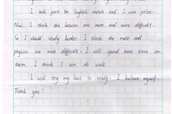 I took part in English match and I won prize.
Now, I think the lessons are more and more difficult.
So I should study harder. I think the math and
physics are more difficult. I will spend more time on
them. I think I can do well.
I will try my best to study. I believe myself.
Thank you.